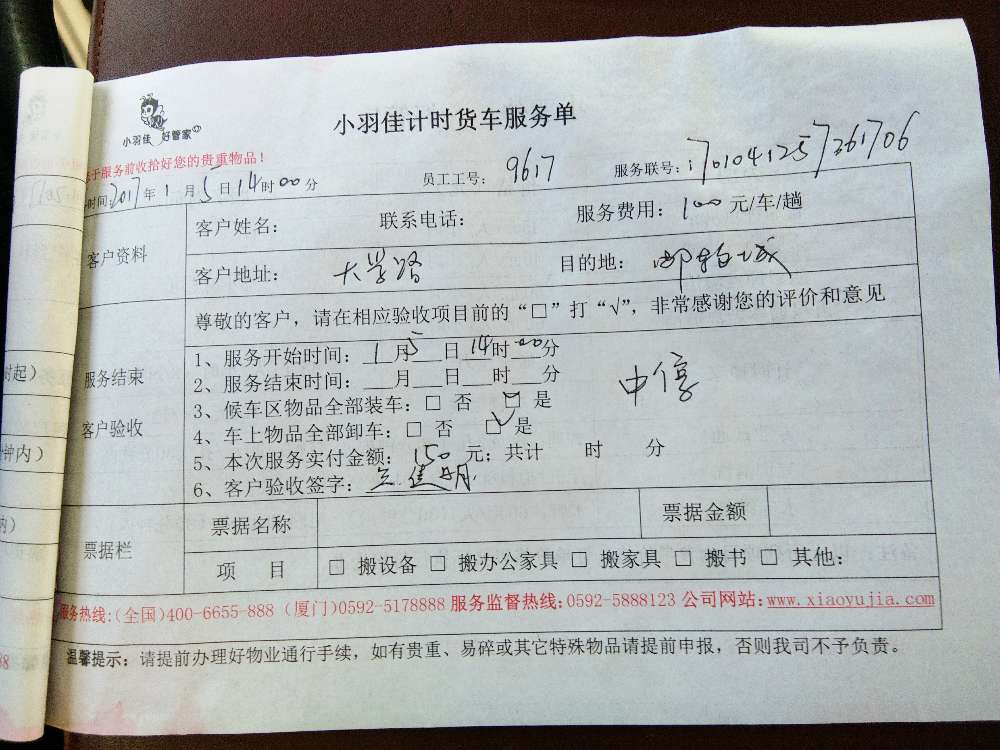 小羽佳 好管家
小羽佳计时货车服务单
于服务前收拾好您的贵重物品！
时间：2017年1月5日14时00分 员工工号：9617 服务联号：1701041257261706
客户资料
客户姓名： 联系电话： 服务费用：100元/车/趟
客户地址：大学路 目的地：邮轮城
尊敬的客户，请在相应验收项目前的“□”打“√”，非常感谢您的评价和意见
服务结束
客户验收
1、服务开始时间：1月5日14时00分
2、服务结束时间：___月___日___时___分
3、候车区物品全部装车：□ 否 ☑ 是
4、车上物品全部卸车：□ 否 ☑ 是
5、本次服务实付金额：150元；共计 时 分
6、客户验收签字：
中停
票据栏
票据名称 票据金额
项 目 □ 搬设备 □ 搬办公家具 □ 搬家具 □ 搬书 □ 其他：
服务热线：(全国)400-6655-888 (厦门)0592-5178888 服务监督热线：0592-5888123 公司网站：www.xiaoyujia.com
温馨提示：请提前办理好物业通行手续，如有贵重、易碎或其它特殊物品请提前申报，否则我司不予负责。